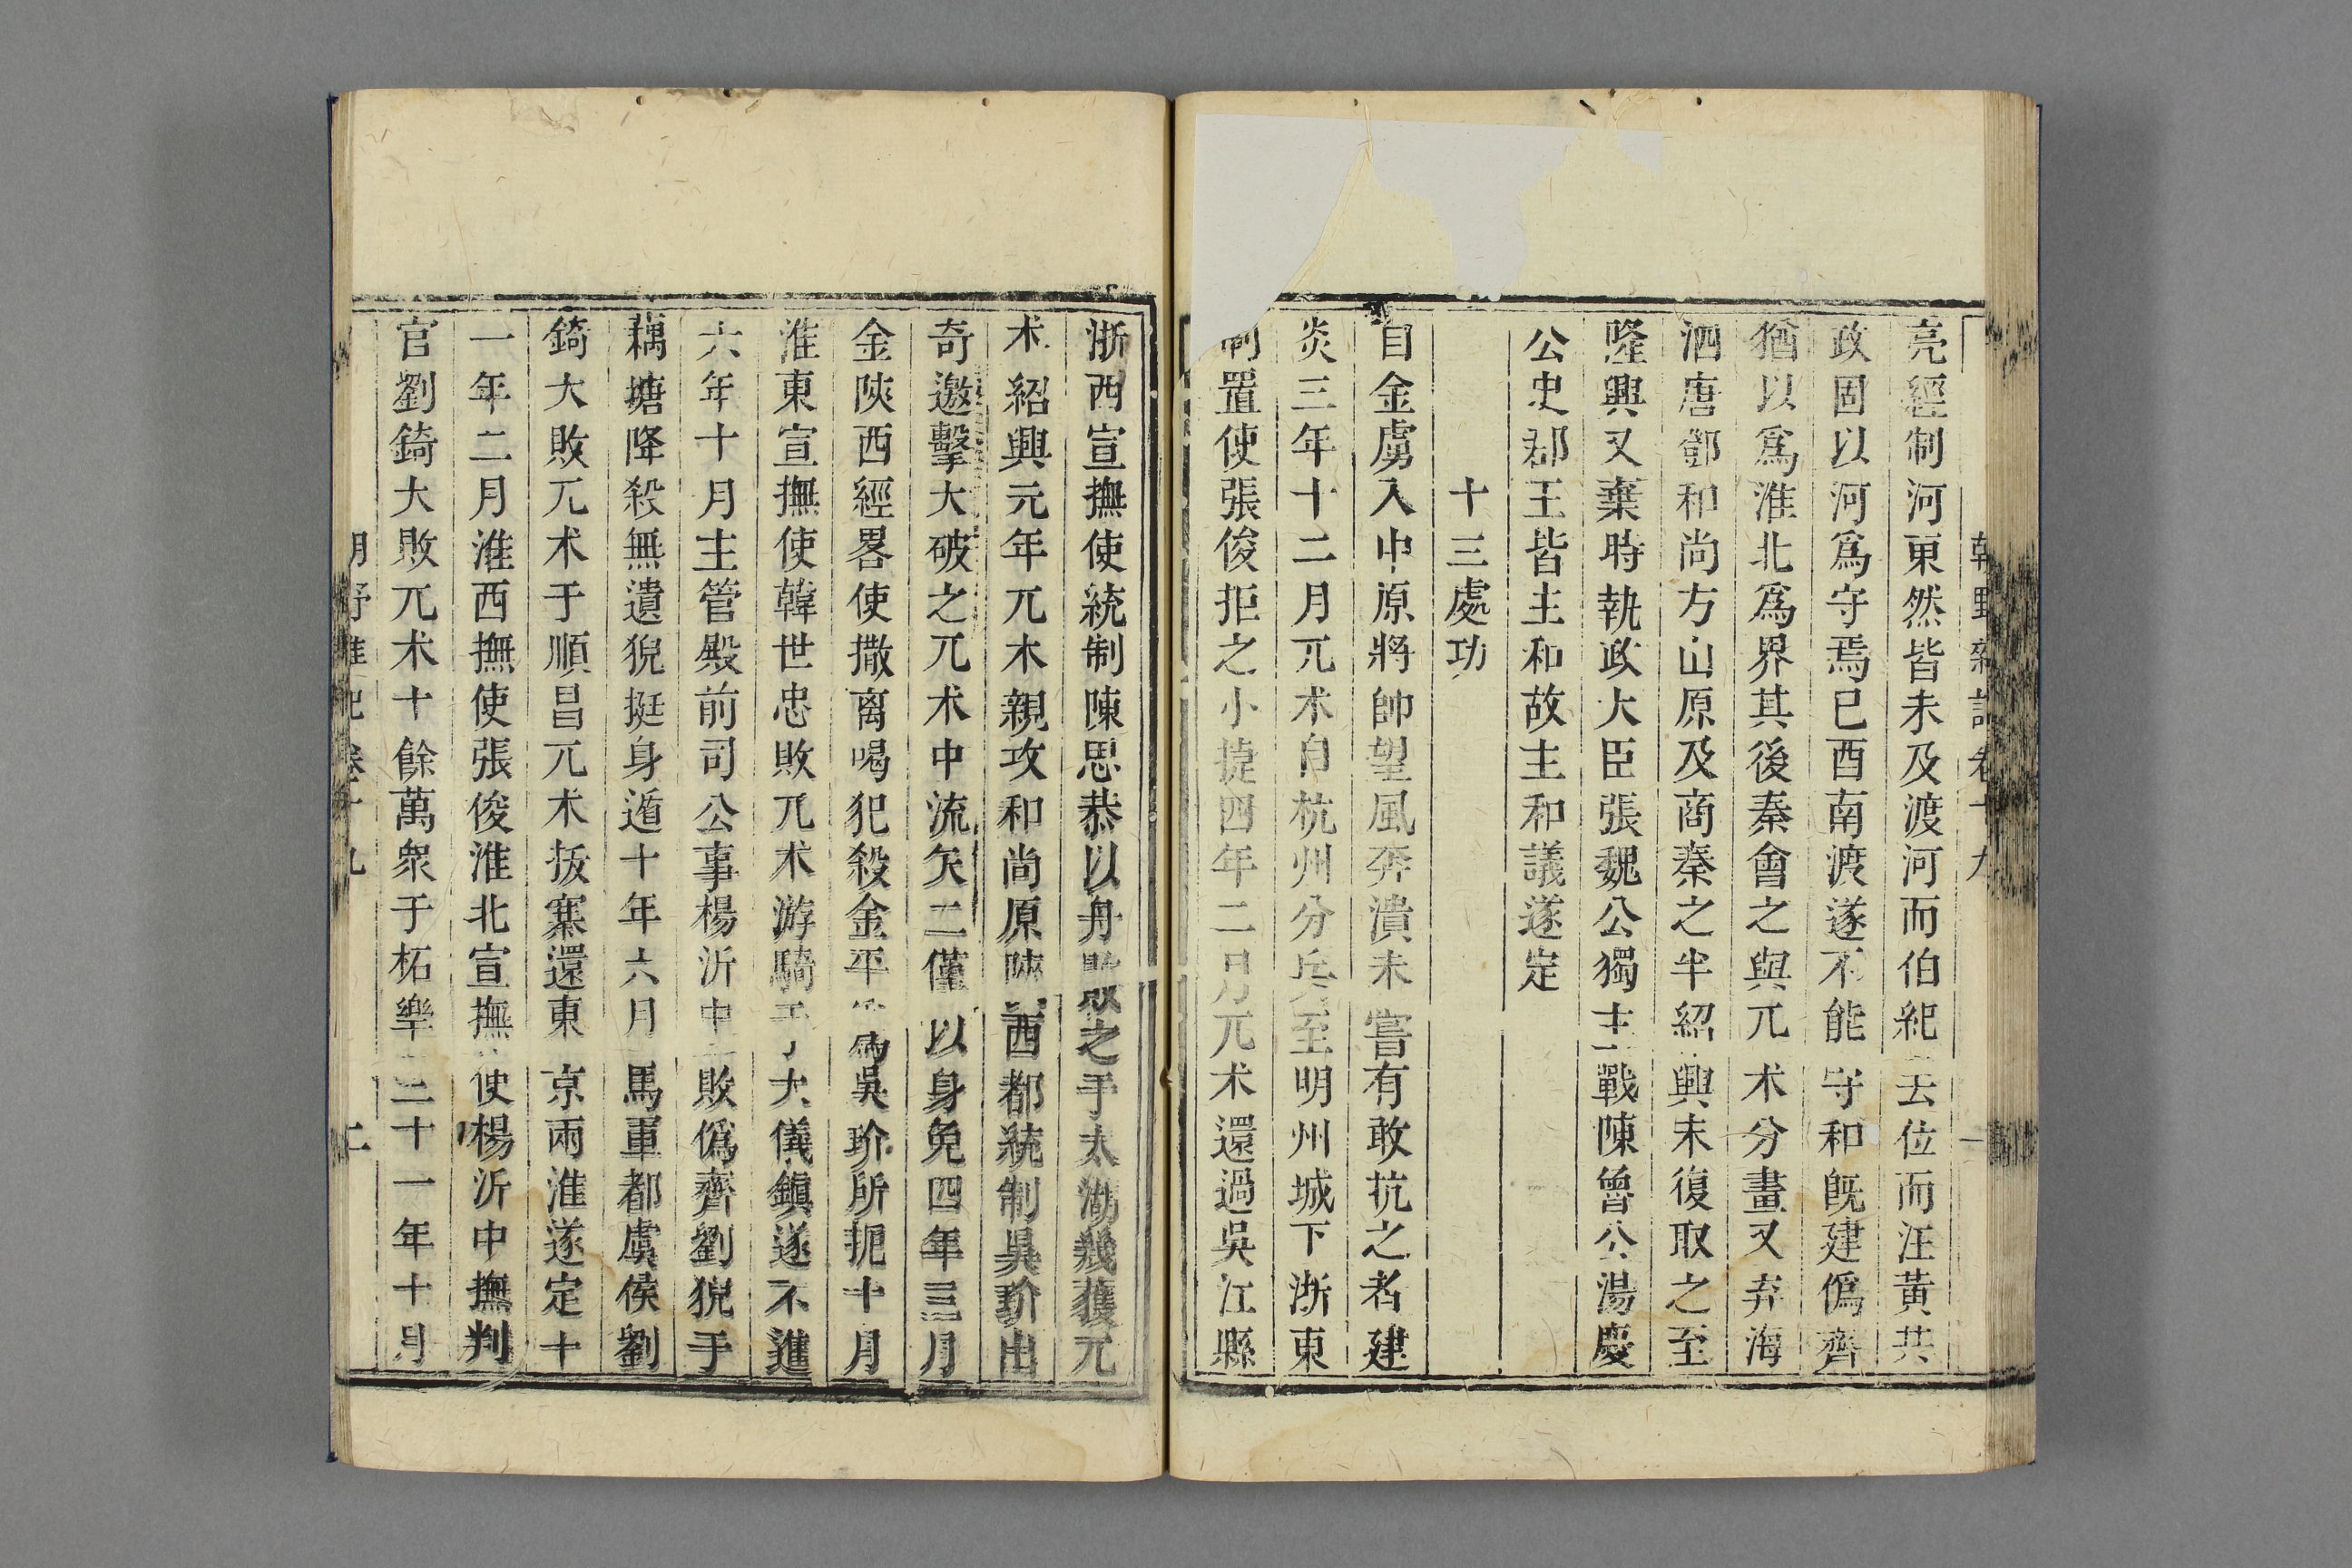 朝野雜記卷十九 一
亮經制河東然皆未及渡河而伯紀去位而汪黃共
政固以河爲守焉巳酉南渡遂不能守和旣建僞齊
猶以爲淮北爲界其後秦會之與兀术分畫又弃海
泗唐鄧和尚方山原及商秦之半紹興末復取之至
隆興又棄時執政大臣張魏公獨主戰陳魯公湯慶
公史郡王皆主和故主和議遂定
十三處功
自金虜入中原將帥望風奔潰未嘗有敢抗之者建
炎三年十二月兀术自杭州分兵至明州城下浙東
制置使張俊拒之小捷四年二月兀术還過吳江縣
浙西宣撫使統制陳思恭以舟敗之于太湖幾獲兀
术紹興元年兀术親攻和尚原陝西都統制吳玠出
奇邀擊大破之兀术中流矢二僅以身免四年三月
金陝西經畧使撒离喝犯殺金平爲吳玠所扼十月
淮東宣撫使韓世忠敗兀术游騎于大儀鎮遂不進
六年十月主管殿前司公事楊沂中敗僞齊劉猊于
藕塘降殺無遺猊挺身遁十年六月馬軍都虞侯劉
錡大敗兀术于順昌兀术拔寨還東京兩淮遂定十
一年二月淮西撫使張俊淮北宣撫使楊沂中撫判
官劉錡大敗兀术十餘萬衆于柘皐三十一年十月
朝野雜記卷十九 二